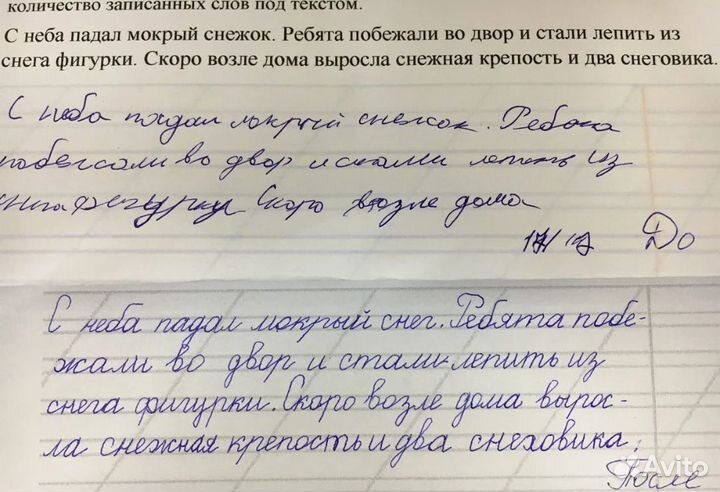 количество записанных слов под текстом.
С неба падал мокрый снежок. Ребята побежали во двор и стали лепить из
снега фигурки. Скоро возле дома выросла снежная крепость и два снеговика.
С неба падал мокрый снежок. Ребята
побежали во двор и стали лепить из
снега фигурки Скоро возле дома
17 До
С неба падал мокрый снег. Ребята побе-
жали во двор и стали лепить из
снега фигурки. Скоро возле дома вырос-
ла снежная крепость и два снеховика.
После
Avito